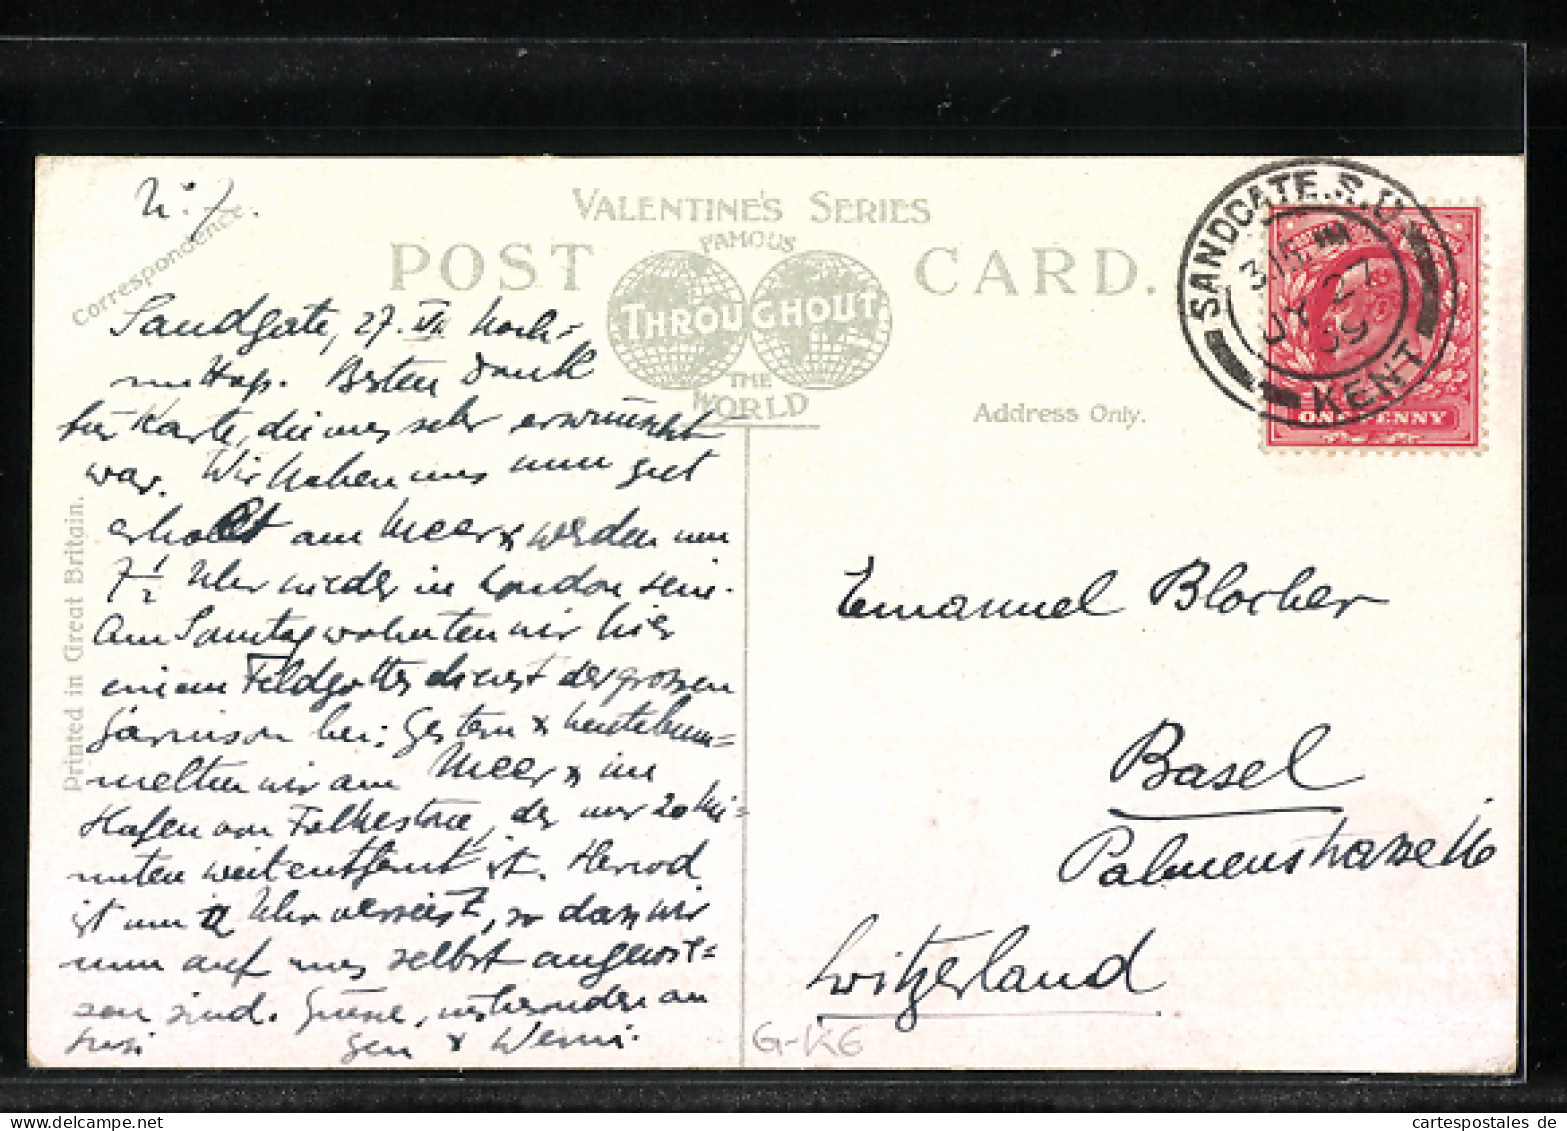 N: 7.
Correspondence.
VALENTINE'S SERIES
FAMOUS
POST CARD.
THROUGHOUT
THE
WORLD
Address Only.
Printed in Great Britain.
SANDGATE.S.O.
3.15 PM
JY 27
09
KENT
ONE PENNY
Sandgate, 27. VII Nach=
mittag. Besten Dank
für Karte, die uns sehr erwünscht
war. Wir haben uns nun gut
erholt am Meer & werden um
7 1/2 Uhr wieder in London sein.
Am Samstag wohnten wir hier
einem Feldgottesdienst der grossen
Garnison bei. Gestern & heute bum=
melten wir am Meer & im
Hafen von Folkestone, der nur 20 Mi=
nuten weit entfernt ist. Herwod
ist um 12 Uhr verreist, so dass wir
nun auf uns selbst angewie=
sen sind. Grüsse, insbesondere an
& Werni.
Emanuel Blocher
Basel
Palmenstrasse 16
Switzerland
G-K6
cartespostales de